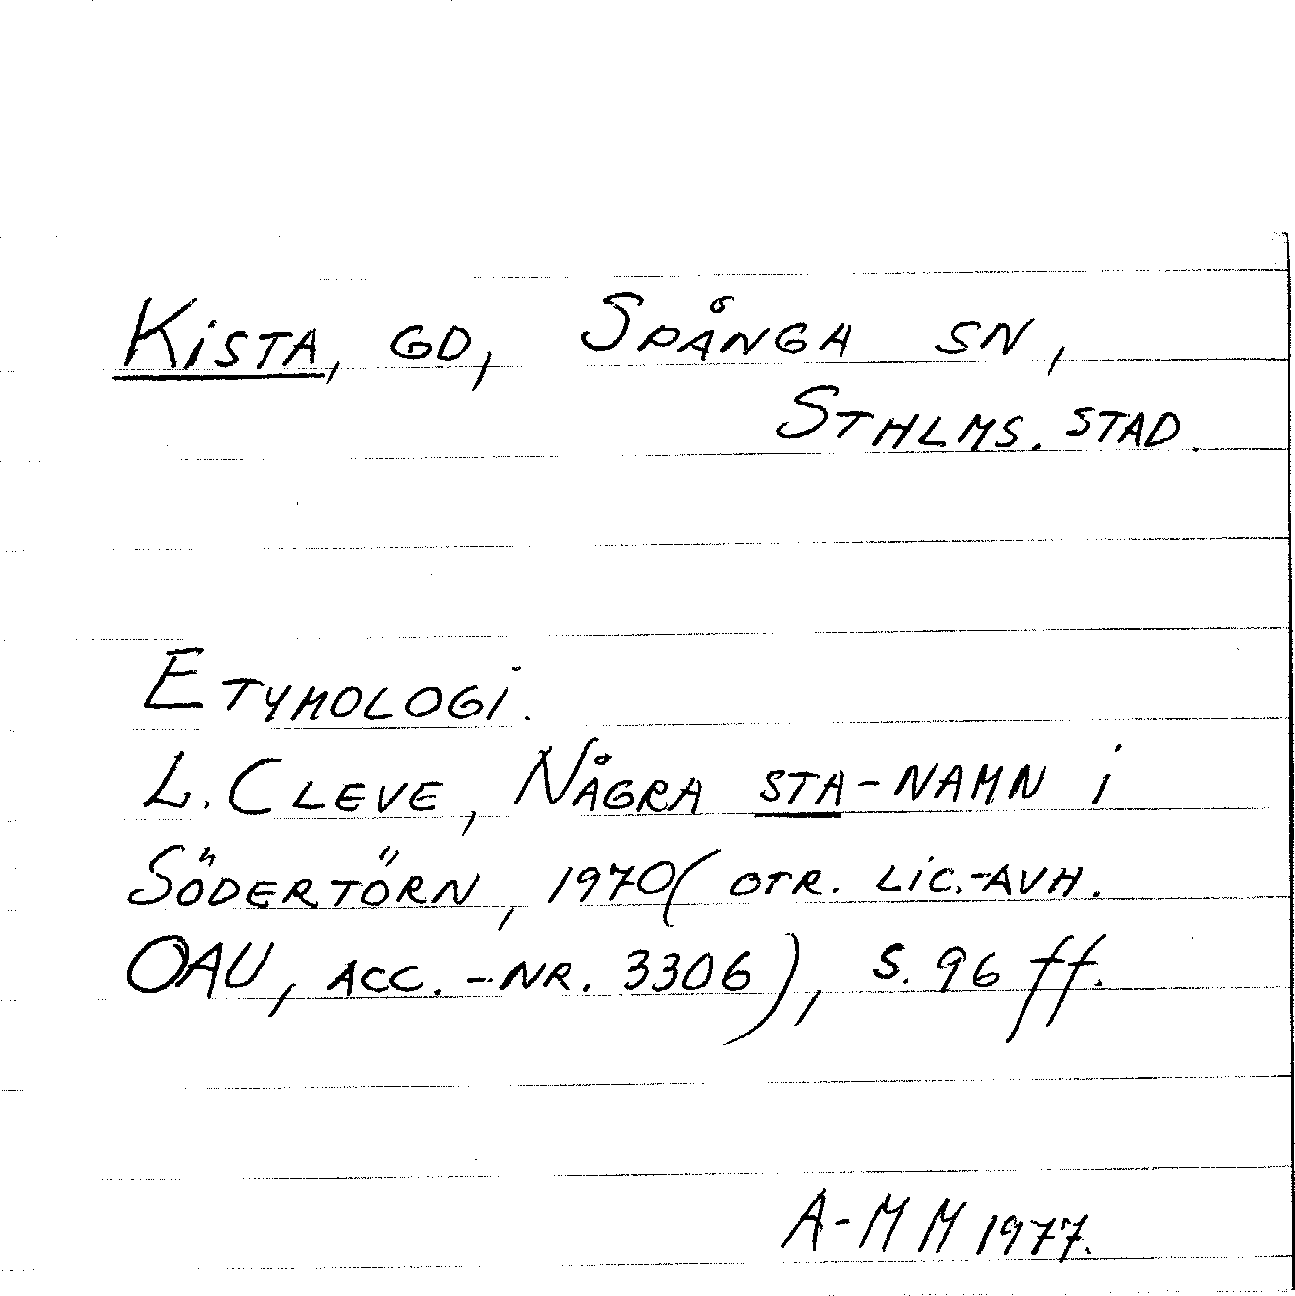 KiSTA, GD, SPÅNGA SN,
STHLMS. STAD.
ETYMOLOGi.
L. CLEVE, NÅGRA STA-NAMN i
SÖDERTÖRN, 1970 (OTR. LiC.-AVH.
OAU, ACC.-NR. 3306), S. 96 ff.
A-MM 1977.